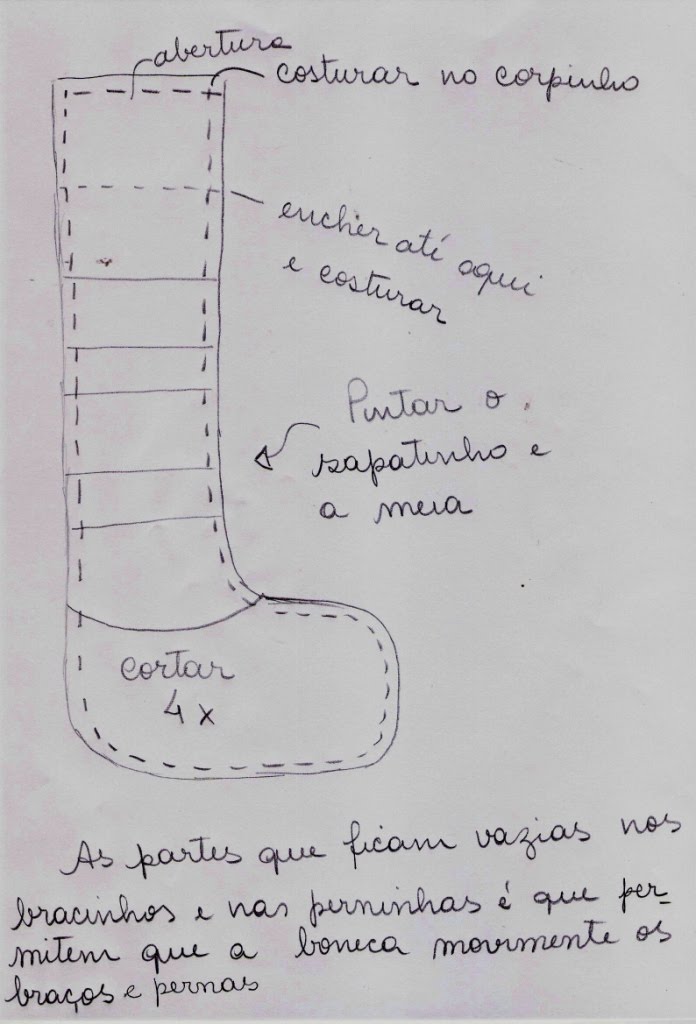 abertura
costurar no corpinho
encher até aqui
e costurar
Pintar o
sapatinho e
a meia
cortar
4 x
As partes que ficam vazias nos
bracinhos e nas perninhas é que per-
mitem que a boneca movimente os
braços e pernas